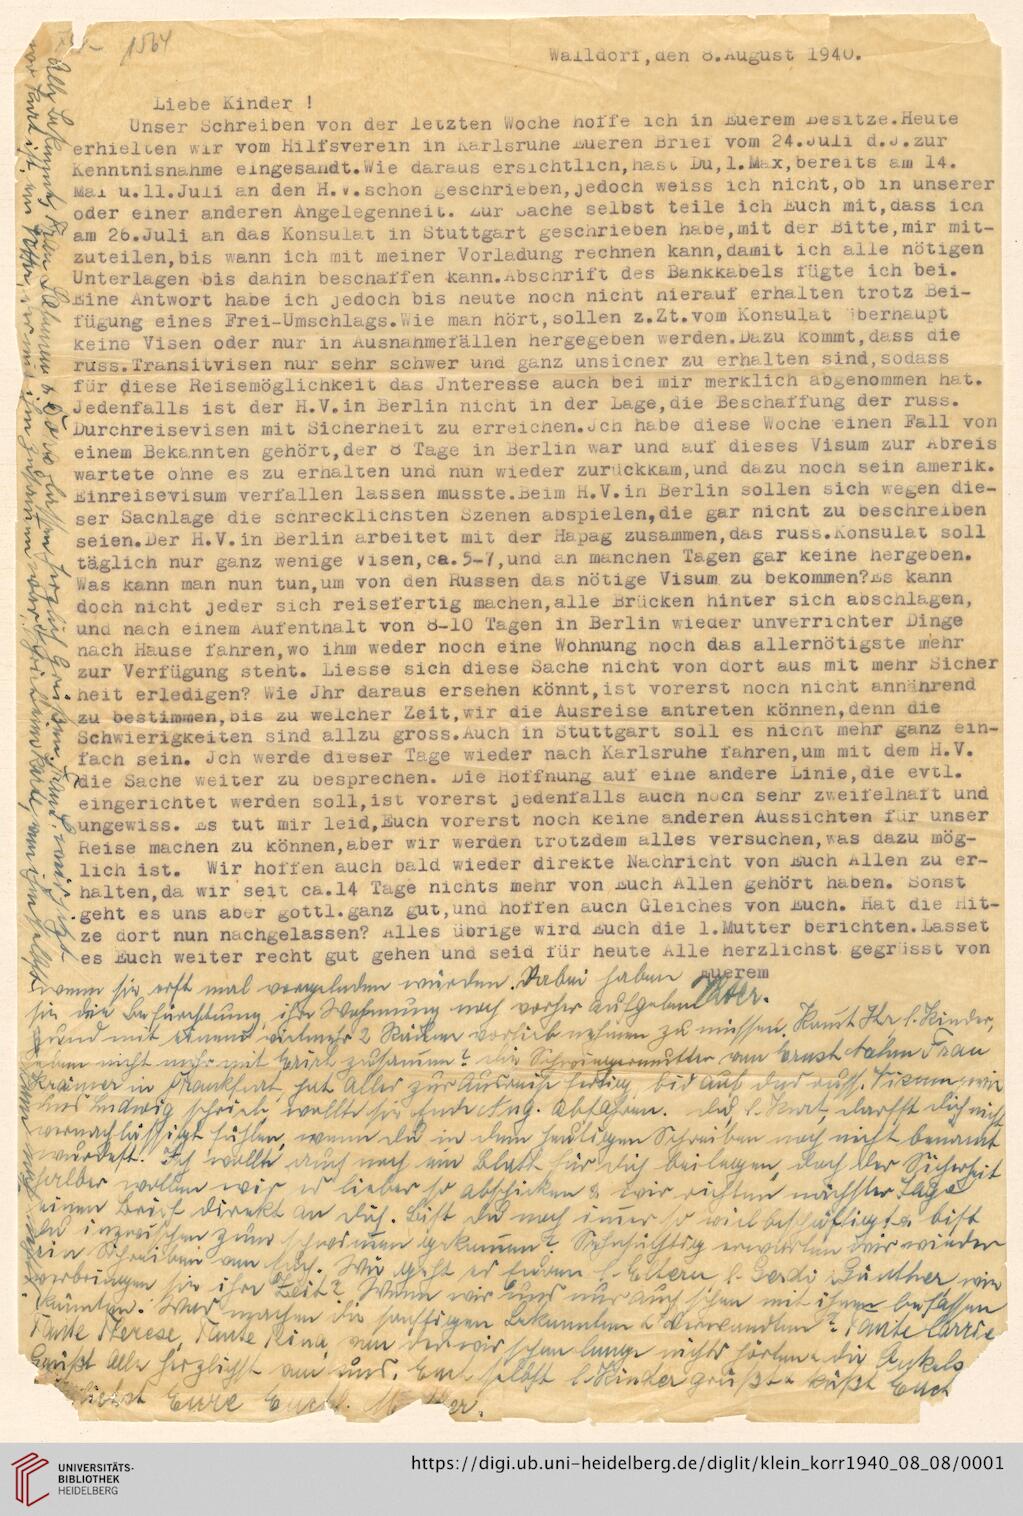 1564
Walldorf,den 8.August 1940.
Liebe Kinder !
Unser Schreiben von der letzten Woche hoffe ich in Euerem Besitze.Heute
erhielten wir vom Hilfsverein in Karlsruhe Eueren Brief vom 24.Juli d.J.zur
Kenntnisnahme eingesandt.Wie daraus ersichtlich,hast Du,l.Max,bereits am 14.
Mai u.11.Juli an den H.V.schon geschrieben,jedoch weiss ich nicht,ob in unserer
oder einer anderen Angelegenheit. Zur Sache selbst teile ich Euch mit,dass ich
am 26.Juli an das Konsulat in Stuttgart geschrieben habe,mit der Bitte,mir mit-
zuteilen,bis wann ich mit meiner Vorladung rechnen kann,damit ich alle nötigen
Unterlagen bis dahin beschaffen kann.Abschrift des Bankkabels fügte ich bei.
Eine Antwort habe ich jedoch bis heute noch nicht hierauf erhalten trotz Bei-
fügung eines Frei-Umschlags.Wie man hört,sollen z.Zt.vom Konsulat überhaupt
keine Visen oder nur in Ausnahmefällen hergegeben werden.Dazu kommt,dass die
russ.Transitvisen nur sehr schwer und ganz unsicher zu erhalten sind,sodass
für diese Reisemöglichkeit das Jnteresse auch bei mir merklich abgenommen hat.
Jedenfalls ist der H.V.in Berlin nicht in der Lage,die Beschaffung der russ.
Durchreisevisen mit Sicherheit zu erreichen.Jch habe diese Woche einen Fall von
einem Bekannten gehört,der 8 Tage in Berlin war und auf dieses Visum zur Abreis
wartete ohne es zu erhalten und nun wieder zurückkam,und dazu noch sein amerik.
Einreisevisum verfallen lassen musste.Beim H.V.in Berlin sollen sich wegen die-
ser Sachlage die schrecklichsten Szenen abspielen,die gar nicht zu beschreiben
seien.Der H.V.in Berlin arbeitet mit der Hapag zusammen,das russ.Konsulat soll
täglich nur ganz wenige Visen,ca.5-7,und an manchen Tagen gar keine hergeben.
Was kann man nun tun,um von den Russen das nötige Visum zu bekommen?Es kann
doch nicht jeder sich reisefertig machen,alle Brücken hinter sich abschlagen,
und nach einem Aufenthalt von 8-10 Tagen in Berlin wieder unverrichter Dinge
nach Hause fahren,wo ihm weder noch eine Wohnung noch das allernötigste mehr
zur Verfügung steht. Liesse sich diese Sache nicht von dort aus mit mehr Sicher
heit erledigen? Wie Jhr daraus ersehen könnt,ist vorerst noch nicht annährend
zu bestimmen,bis zu welcher Zeit,wir die Ausreise antreten können,denn die
Schwierigkeiten sind allzu gross.Auch in Stuttgart soll es nicht mehr ganz ein-
fach sein. Jch werde dieser Tage wieder nach Karlsruhe fahren,um mit dem H.V.
die Sache weiter zu besprechen. Die Hoffnung auf eine andere Linie,die evtl.
eingerichtet werden soll,ist vorerst jedenfalls auch noch sehr zweifelhaft und
ungewiss. Es tut mir leid,Euch vorerst noch keine anderen Aussichten für unser
Reise machen zu können,aber wir werden trotzdem alles versuchen,was dazu mög-
lich ist. Wir hoffen auch bald wieder direkte Nachricht von Euch Allen zu er-
halten,da wir seit ca.14 Tage nichts mehr von Euch Allen gehört haben. Sonst
geht es uns aber gottl.ganz gut,und hoffen auch Gleiches von Euch. Hat die Hit-
ze dort nun nachgelassen? Alles übrige wird Euch die l.Mutter berichten.Lasset
es Euch weiter recht gut gehen und seid für heute Alle herzlichst gegrüsst von
Euerem
Vater.
wenn sie erst mal vorgeladen würden. Dabei haben
sie die Befürchtung, ihre Wohnung noch vorher aufgeben
und mit einem vielmehr 2 Räumen vorlieb nehmen zu müssen. Kamt Ihr l. Kinder,
eben nicht mehr mit Erich zusammen? Die Schwiegermutter von Ernst Frau
Krämer in Frankfurt, hat Alles zur Ausreise fertig, bis auf das russ. Visum, wie
uns Ludwig schrieb, wollte sie Ende Aug. abfahren. Du, l. Kurt, darfst Dich nicht
vernachlässigt fühlen, wenn Du in dem heutigen Schreiben noch nicht benannt
wurdest. Ich wollte auch noch ein Blatt für Dich beilegen, doch der Sicherheit
halber wollen wir es lieber so abschicken & wir richten nächster Tage
einen Brief direkt an Dich. Bist Du noch immer so viel beschäftigt & bist
Du inzwischen zum schwimmen gekommen? Sehnsüchtig erwarten wir wieder
ein Schreiben von Euch. Wie geht es Euren l. Eltern, l. Gerdi, Günther, wie
verbringen sie ihre Zeit? Wenn wir uns nur auch schon mit ihnen befassen
könnten. Was machen die sonstigen Bekannten & Verwandten? Tante Carrie
Tante Therese, Tante Rina, von der wir schon lange nichts hörten & die Onkels
Grüßt Alle herzlichst von uns. Euch selbst l. Kinder grüßt & küßt Euch
Eure Mutter.
UNIVERSITÄTS-
BIBLIOTHEK
HEIDELBERG
https://digi.ub.uni-heidelberg.de/diglit/klein_korr1940_08_08/0001